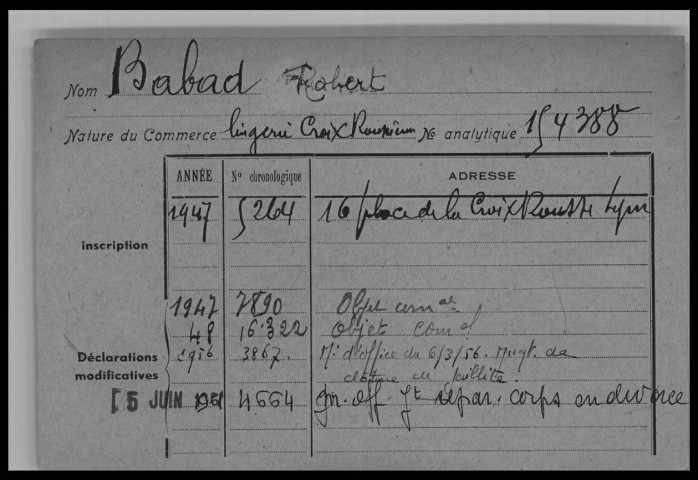 Nom Babad Robert
Nature du Commerce lingerie Croix Roussienne No analytique 154388
ANNÉE No chronologique ADRESSE
inscription
1947 5264 16 place de la Croix Rousse Lyon
1947 7890 Objet com al
48 16.322 Objet com al
Déclarations modificatives
1956 3867. M. d'office du 6/3/56. Mugt. de
cloture de faillite.
5 JUIN 1961 4664 off. Jt sépar. corps en divorce